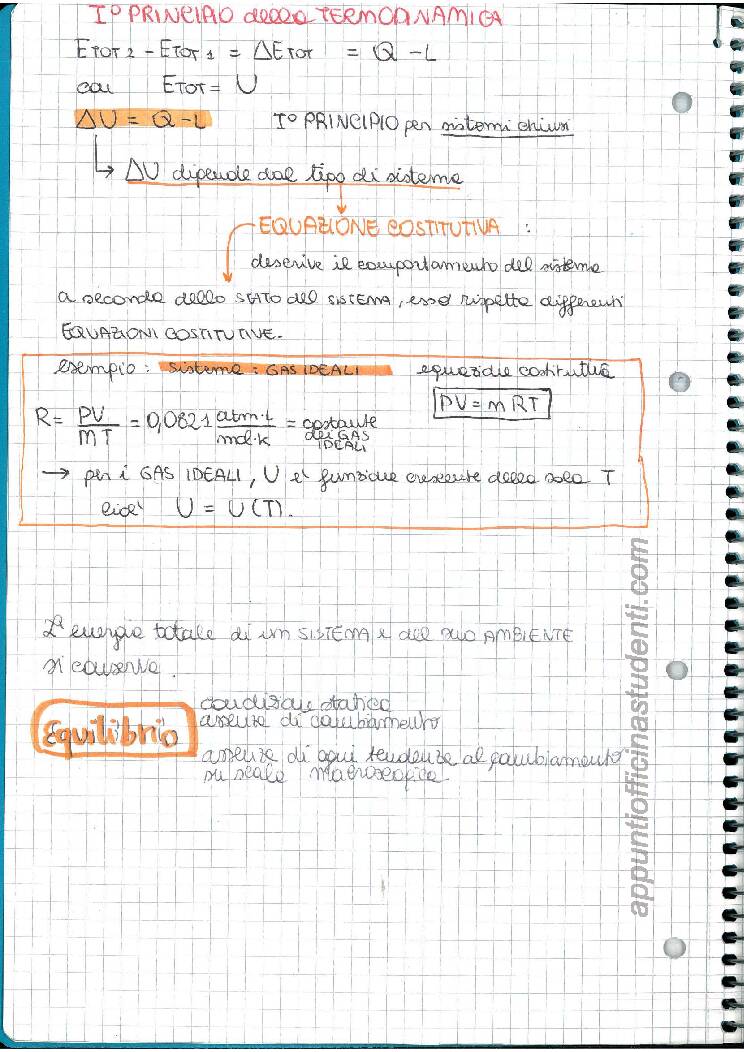 I° PRINCIPIO della TERMODINAMICA
ETOT 2 - ETOT 1 = ΔETOT = Q - L
con ETOT = U
ΔU = Q - L I° PRINCIPIO per sistemi chiusi
↳ ΔU dipende dal tipo di sistema
EQUAZIONE COSTITUTIVA :
descrive il comportamento del sistema
a seconda dello STATO del SISTEMA, esso rispetta differenti
EQUAZIONI COSTITUTIVE.
esempio : sistema : GAS IDEALI equazione costitutiva
PV = mRT
R = PV / mT = 0,0821 atm·L / mol·K = costante dei GAS IDEALI
→ per i GAS IDEALI, U e' funzione crescente della sola T
cioe' U = U(T).
L'energia totale di un SISTEMA e del suo AMBIENTE
si conserva.
Equilibrio
condizione statica
assenza di cambiamento
assenza di ogni tendenza al cambiamento
su scala macroscopica
appuntiofficinastudenti.com